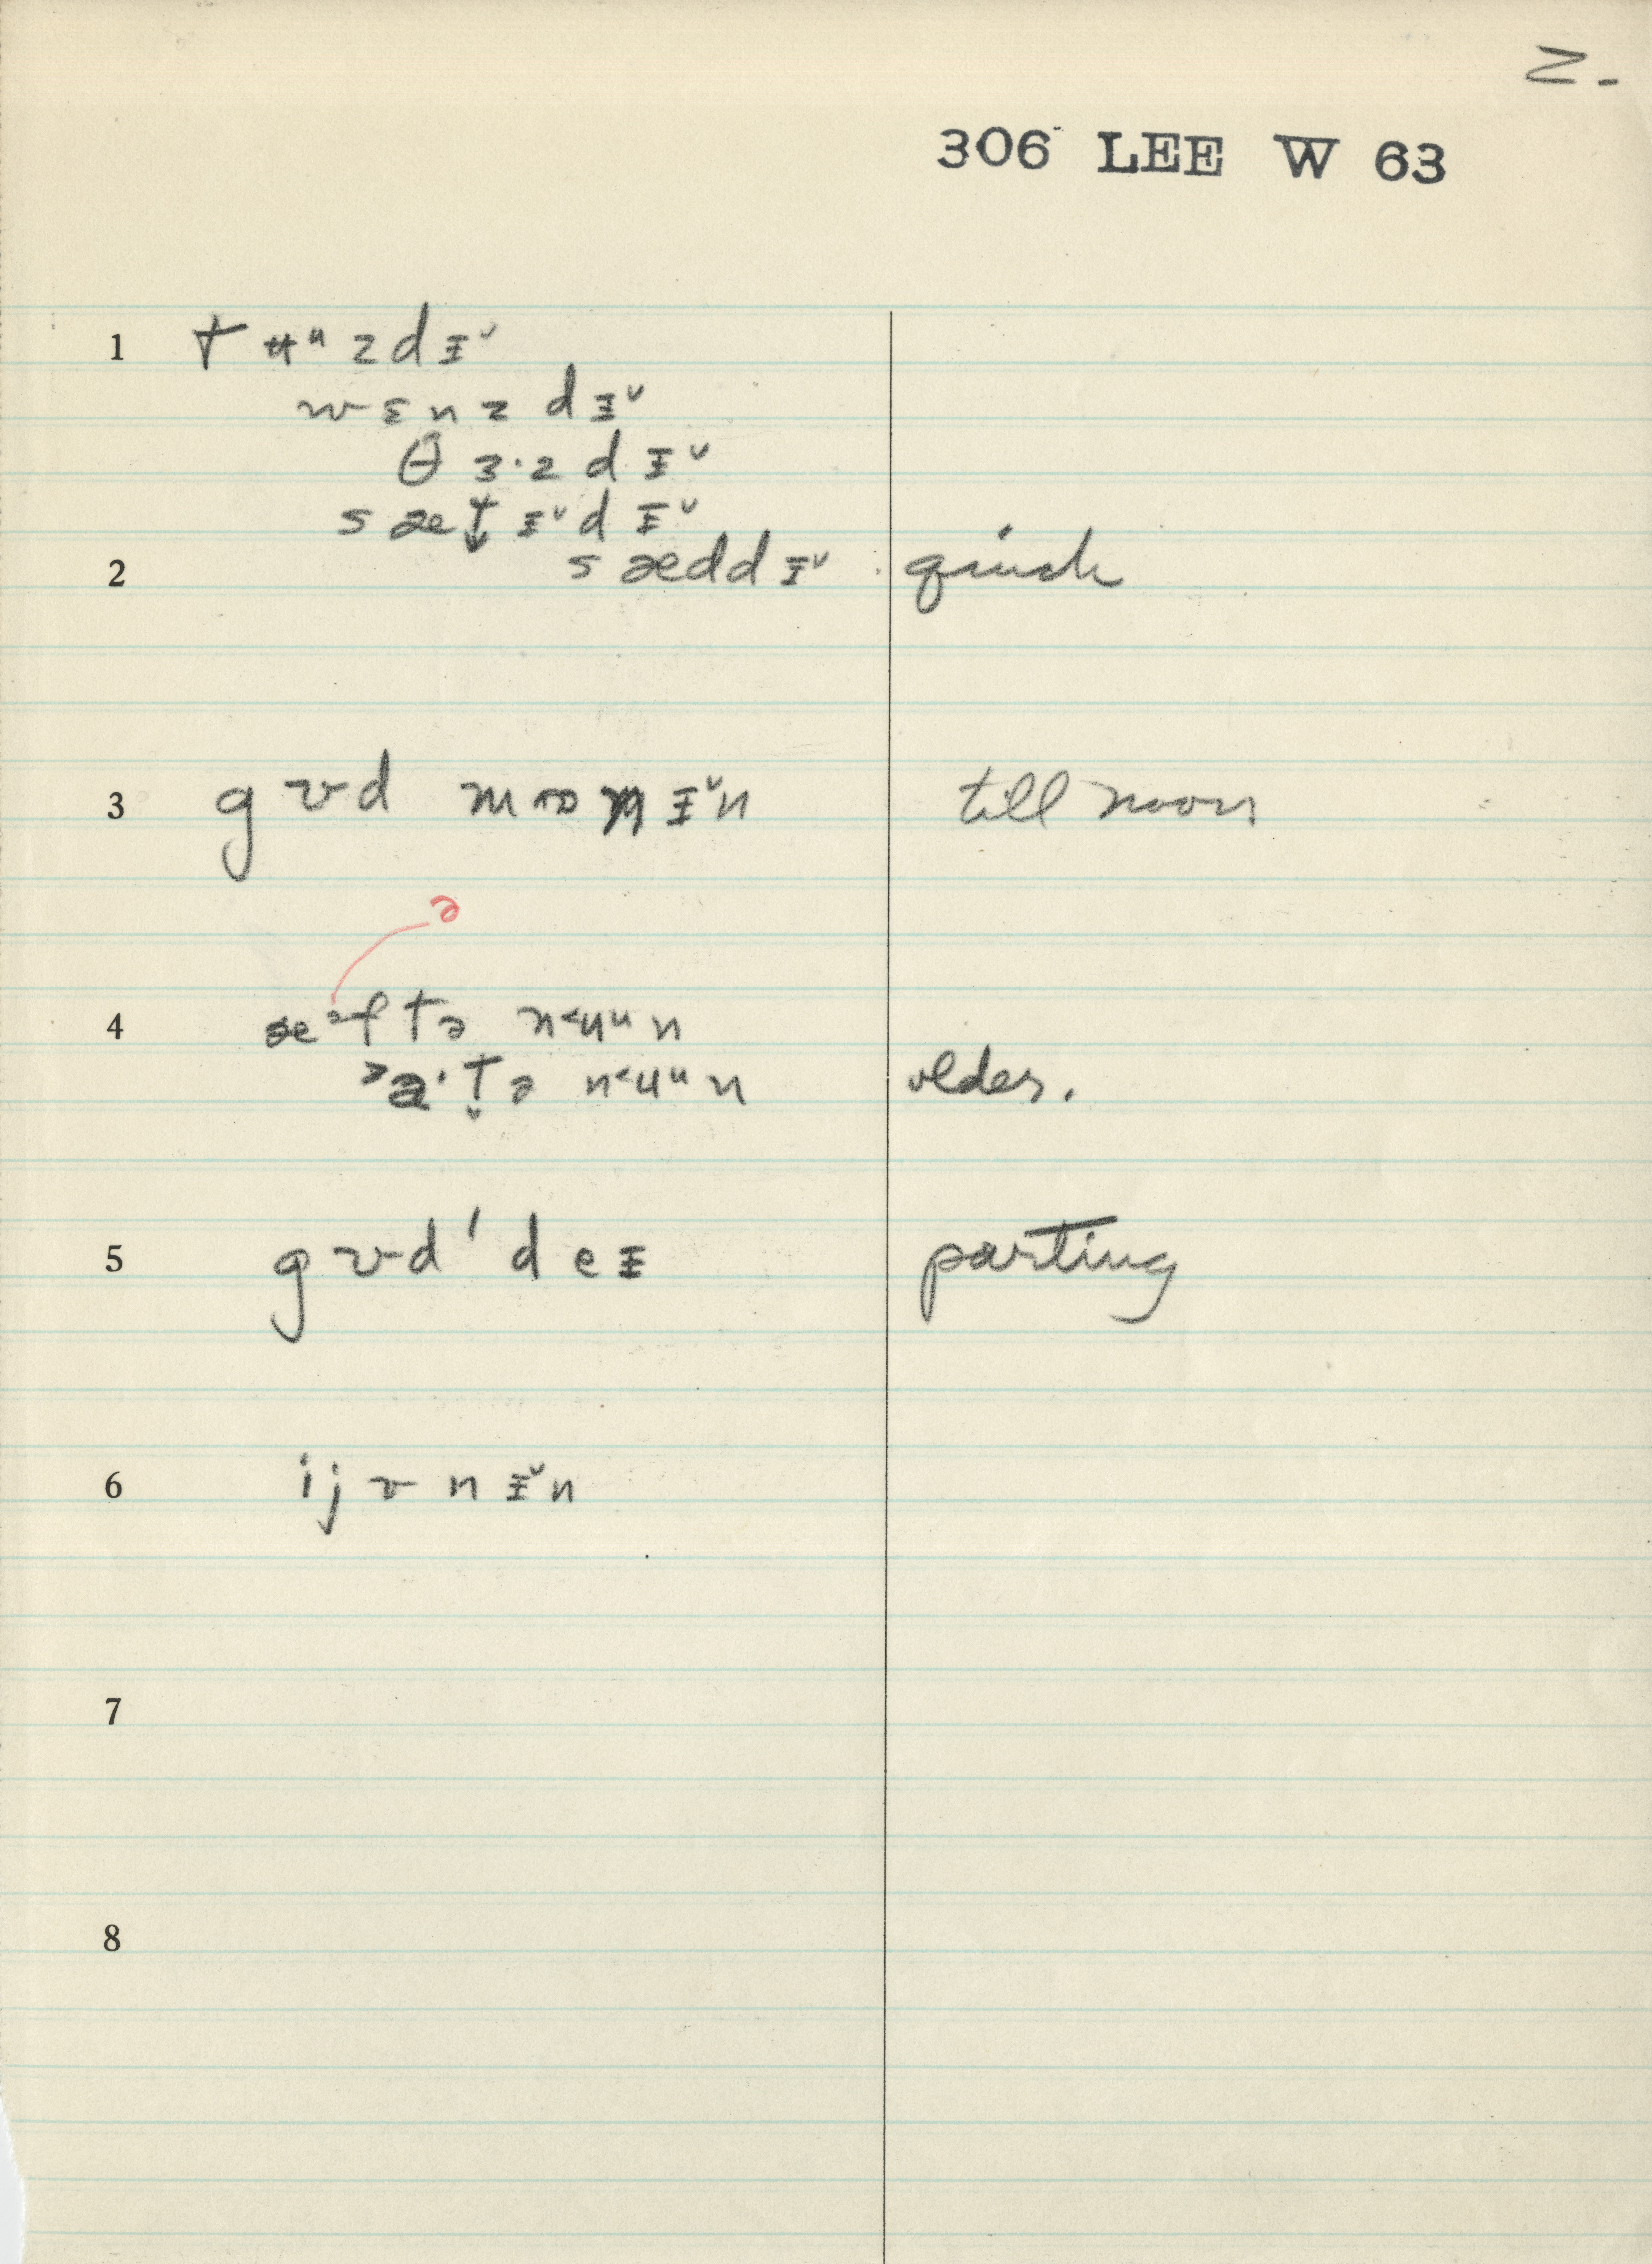 2.
306 LEE W 63
1 t ʉᵘ z d ɪ̵ ˅
w ɛ n z d ɪ̵ ˅
θ ɜ · z d ɪ̵ ˅
s æ t̬ ɪ̵ ˅ d ɪ̵ ˅
2 s æ d d ɪ̵ ˅ quick
3 g ʊ d m ɔ ɪ̵ ˅ n till noon
ə
4 æ f t ə n ˂ u ᵘ n
a · t̬ ə n ˂ u ᵘ n older.
5 g ʊ d ' d e ɪ̵ parting
6 i j ʊ n ɪ̵ ˅ n
7
8